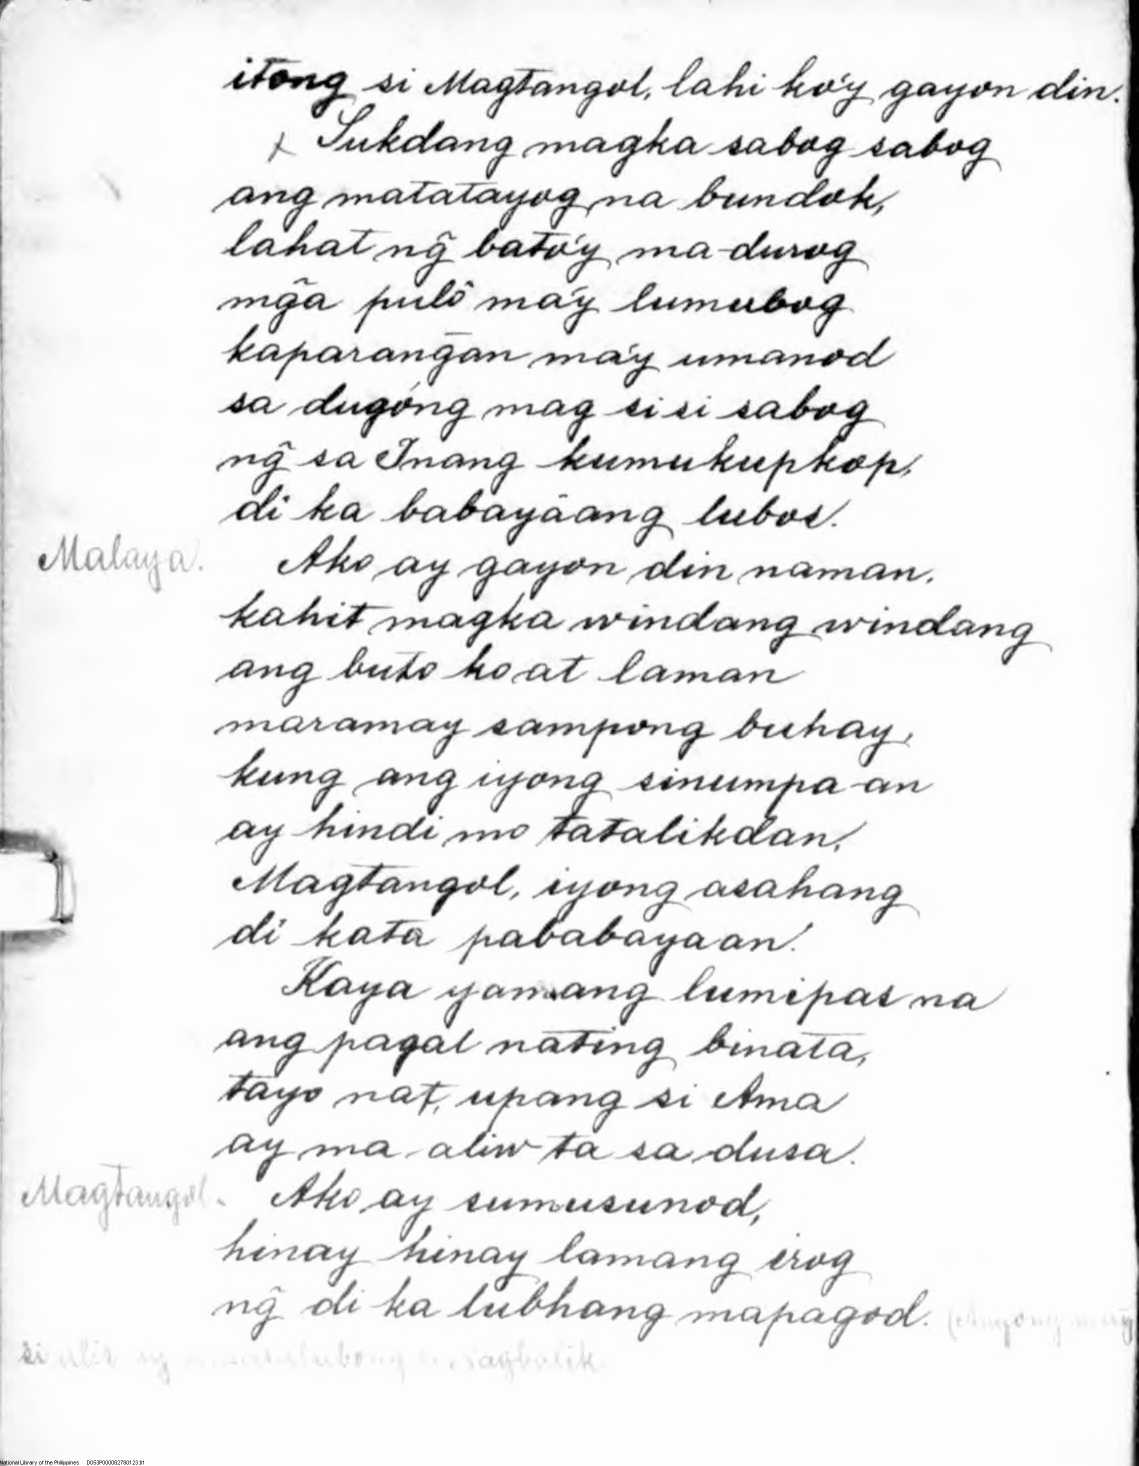 itong si Magtangol, lahi ko'y gayon din.
x Sukdang magka sabog sabog
ang matatayog na bundok,
lahat ng̃ bato'y ma-durog
mg̃a pulô ma'y lumubog
kaparang̃an ma'y umanod
sa dugóng mag sisi sabog
ng̃ sa Inang kumukupkop,
di ka babayáang lubos.
Malaya. Ako ay gayon din naman.
kahit magka windang windang
ang buto ko at laman
maramay sampong buhay,
kung ang iyong sinumpa-an
ay hindi mo tatalikdan,
Magtangol, iyong asahang
di kata pababayaan!
Kaya yamang lumipas na
ang pagal nating binata,
tayo nat, upang si Ama
ay ma aliw ta sa dusa.
Magtangol. Ako ay sumusunod,
hinay hinay lamang irog
ng̃ di ka lubhang mapagod.
National Library of the Philippines